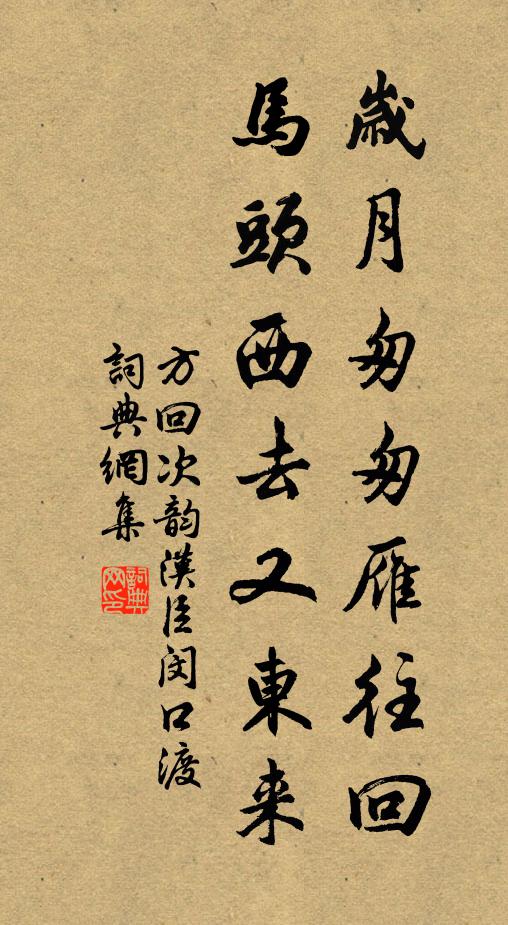 歲月匆匆雁往回
馬頭西去又東来
方回次韵漢臣閔口渡
詞典網集
詞典網印